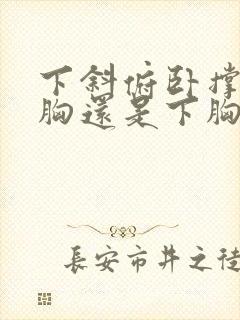 下斜俯卧撑
胸還是下胸
長安市井之徒